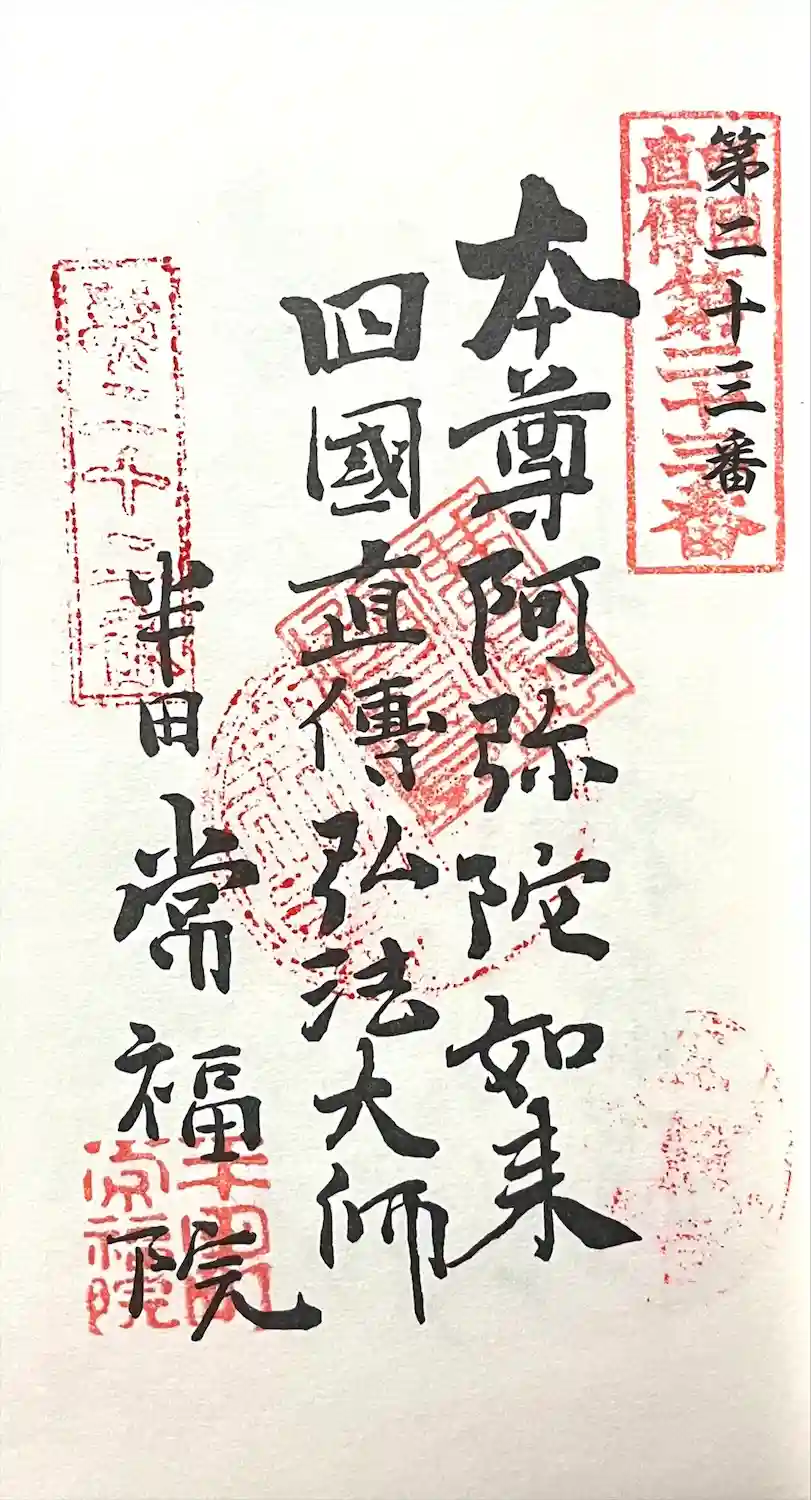 第二十三番
四國
直傳
第二十三番
本尊阿弥陀如来
四國直傳弘法大師
半田常福院
第二十三番
半田
常福院